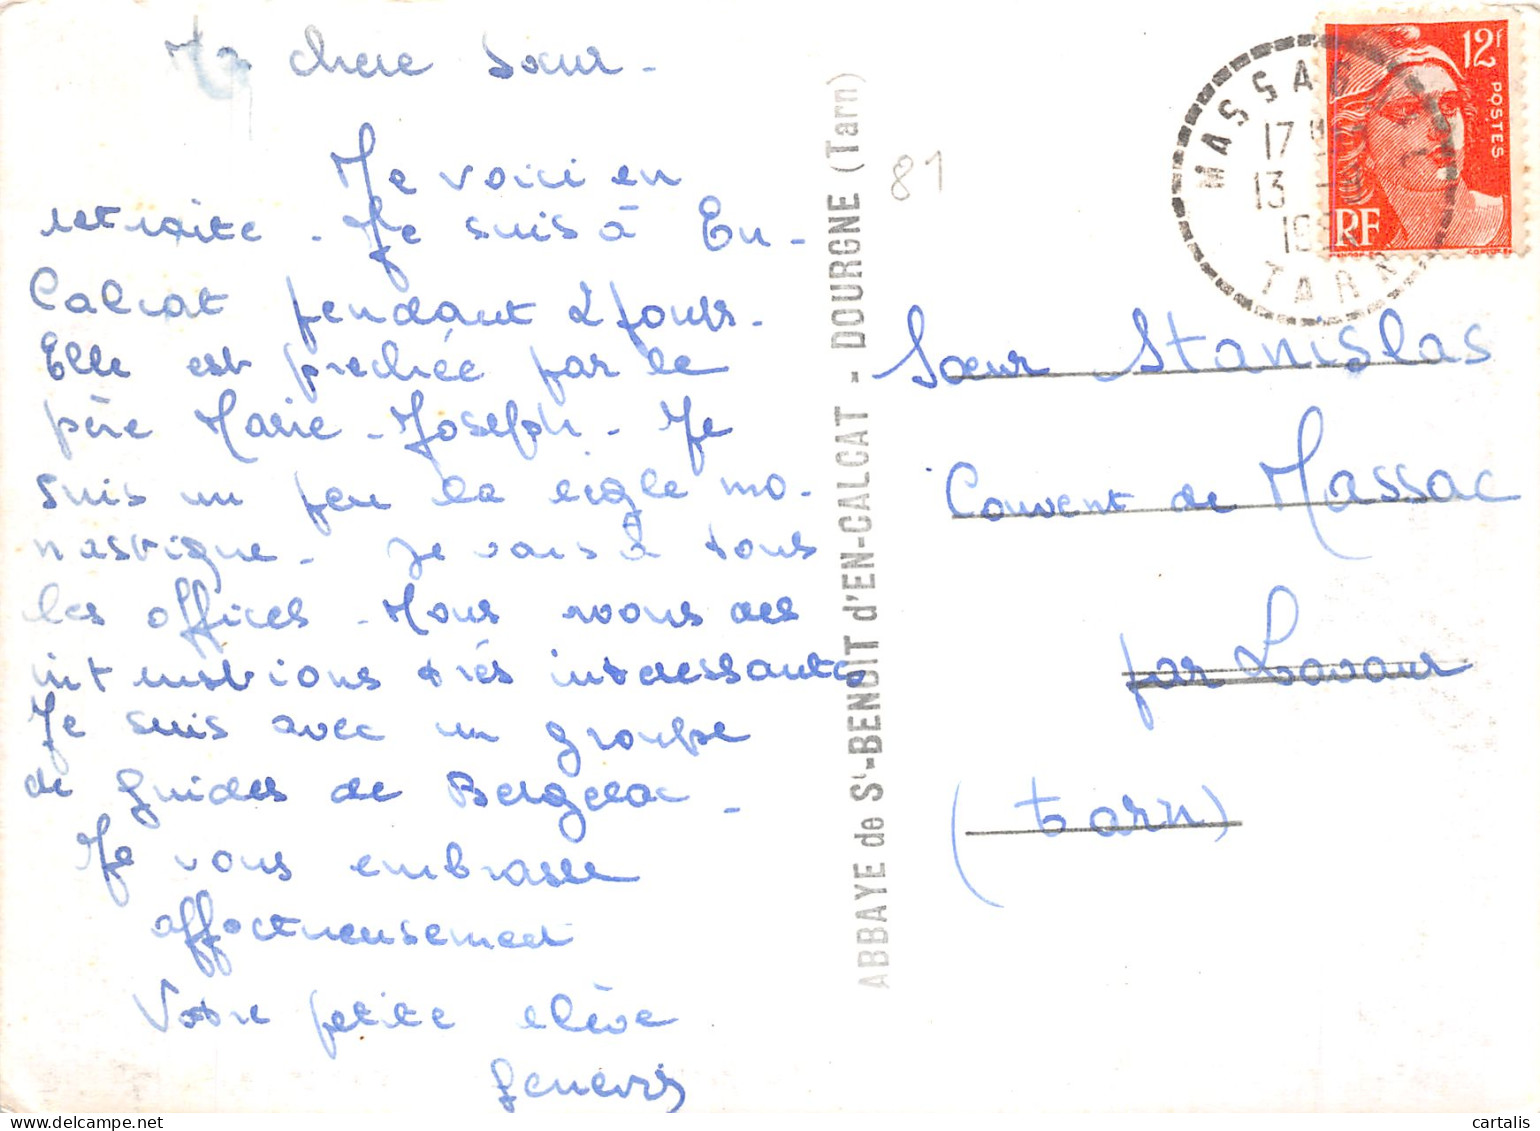 Ma chere Sœur -
Je voici en
retraite - Je suis à En-
Calcat pendant 2 jours -
Elle est prechée par le
père Marie - Joseph - Je
suis un peu la règle mo-
nastique - Je vais à tous
les offices - Nous avons des
intentions très interessantes
Je suis avec un groupe
de guides de Bergerac -
Je vous embrasse
affectueusement
Votre petite elève
ABBAYE de St-BENOIT d'EN-CALCAT - DOURGNE (Tarn)
81
12f
POSTES
RF
17 H
13
TARN
Sœur Stanislas
Couvent de Massac
par Lavaur
(tarn)
cartalis